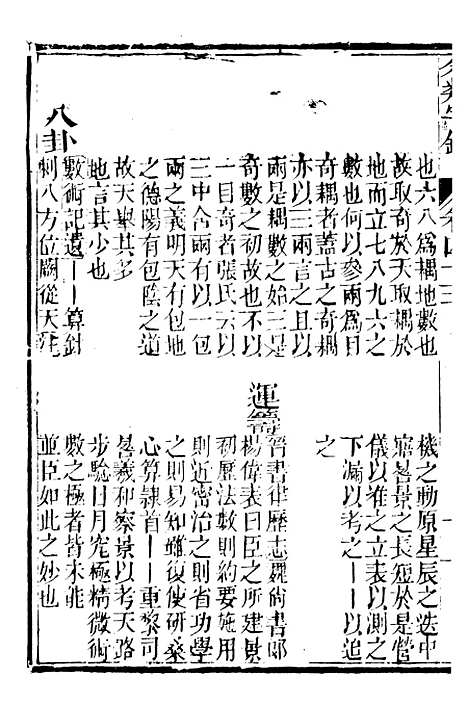 也六八爲耦地數也
故取奇於天取耦於
地而立七八九六之
數也何以參兩爲目
奇耦者蓋古之奇耦
亦以三兩言之且以
兩是耦數之始三是
奇數之初故也不以
一目奇者張氏云以
三中含兩有以一包
兩之義明天有包地
之德陽有包陰之道
故天舉其多
地言其少也
八卦
數術記遺一一算針
刺八方位闕從天
機之動原星辰之迭中
寤晷景之長短於是營
儀以准之立表以測之
下漏以考之一一以追
之
運籌
晉書律歷志尚書郎
楊偉表曰臣之所建景
初歷法數則約要施用
則近密治之則省功學
之則易知雖復使研桑
心算隸首一一重黎司
晷羲和察景以考天路
步驗日月究極精微術
數之極者皆未能
並臣如此之妙也